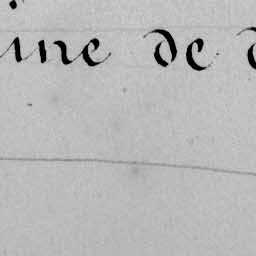 ine de d